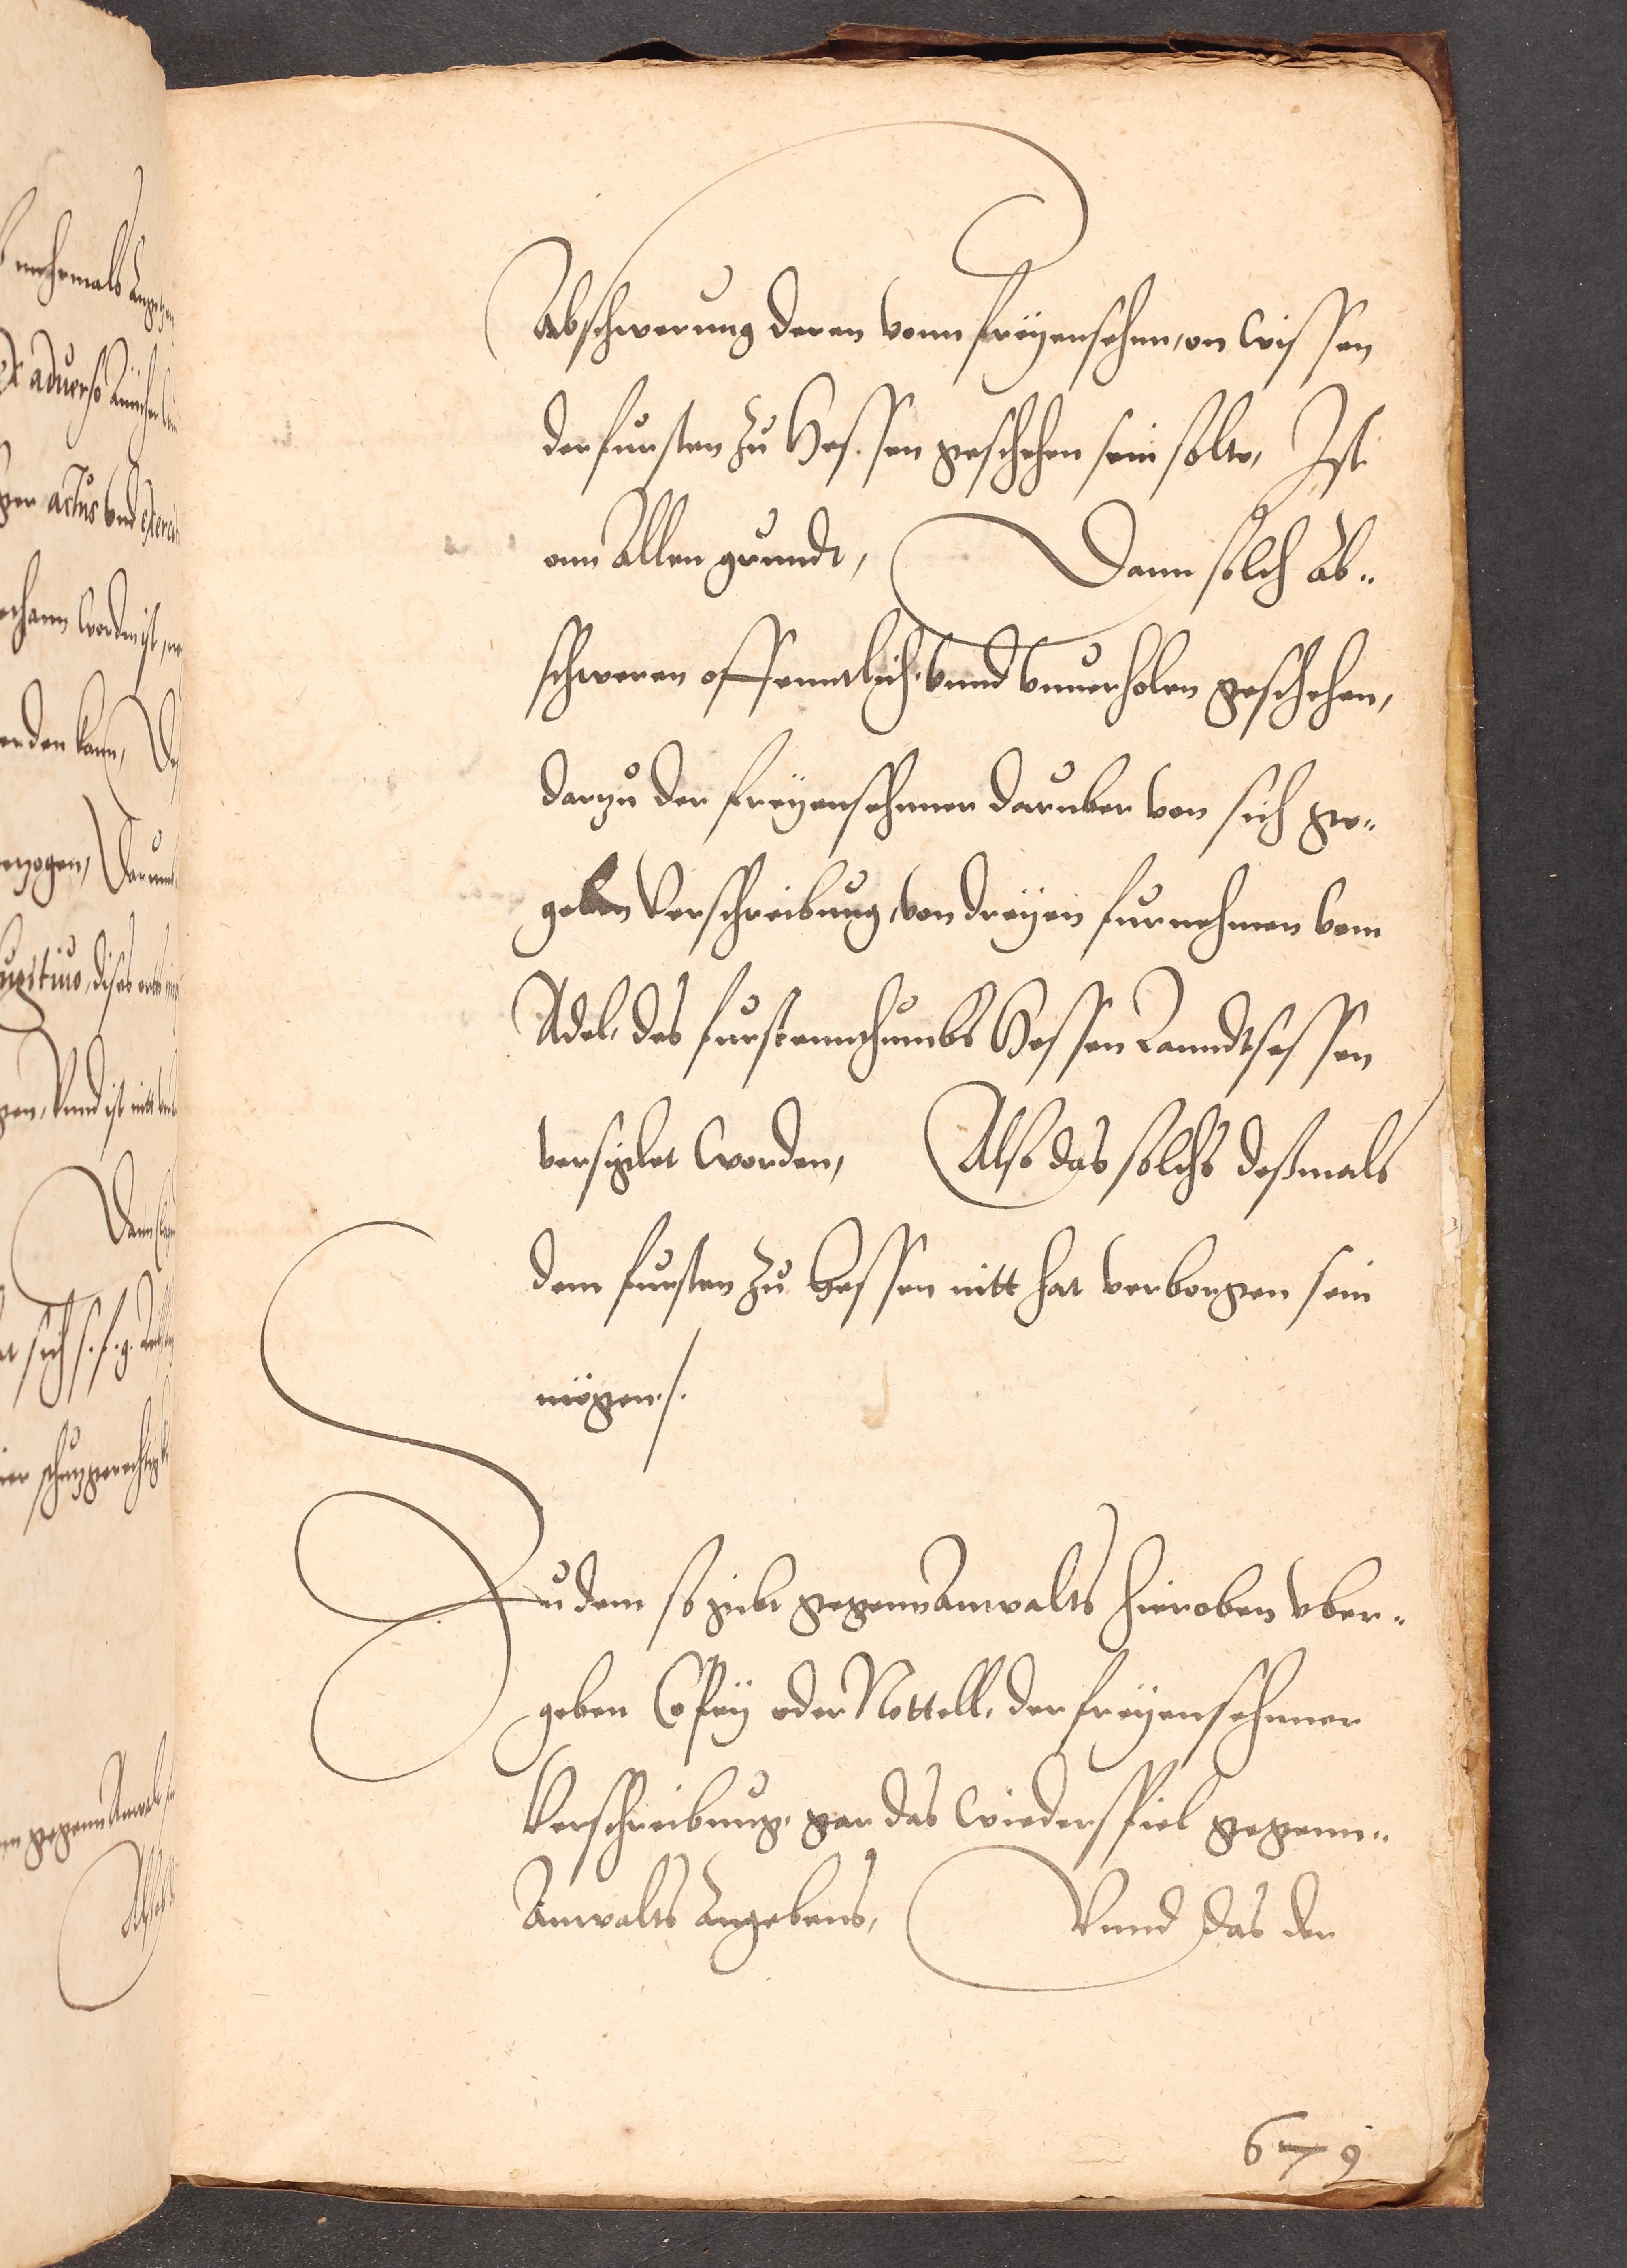 Abschwerung deren vonn freyensehen, on wissen
der fursten zu Hessen geschehen sein solte, Ist
onn allen grundt, Dann solch ab„
schweren offenntlich, vnnd vnuerholen geschehen,
darzu der freyensehnner daruber von sich ge„
geben Verschreibung, von dreyen furnehmen vom
Adel, des furstennthumbs Hessen Lanndtsessen
versiglet worden, Also das solchs deßmals
dem fursten zu Hessen nitt hat verborgen sein
mögen ./.
Zu dem so gibt gegenn Anwalts hieroben vber„
geben Copey oder Nottell, der freyensehnner
Verschreibung, gar das wiederspiel gegenn„
Anwalts Angebens, Vnnd das der
679